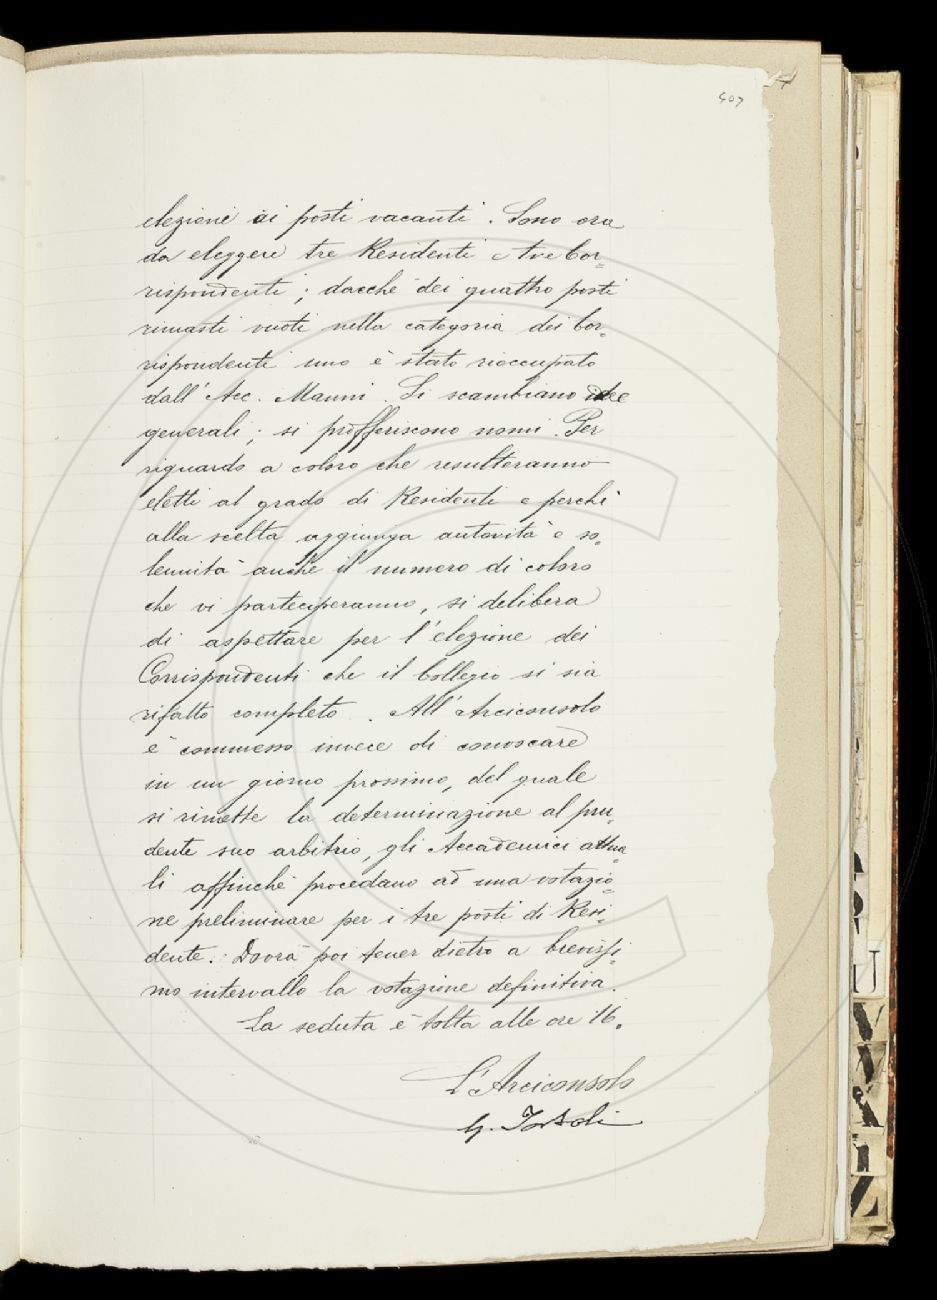 407
elezioni ai posti vacanti. Sono ora
da eleggere tre Residenti e tre Cor=
rispondenti; dacchè dei quattro posti
rimasti vuoti nella categoria dei Cor=
rispondenti uno è stato rioccupato
dall'Acc. Manni. Si scambiano idee
generali; si profferiscono nomi. Per
riguardo a coloro che resulteranno
eletti al grado di Residenti e perchè
alla scelta aggiunga autorità e so=
lennità anche il numero di coloro
che vi parteciperanno, si delibera
di aspettare per l'elezione dei
Corrispondenti che il Collegio si sia
rifatto completo. All'Arciconsolo
è commesso invece di convocare
in un giorno prossimo, del quale
si rimette la determinazione al pru=
dente suo arbitrio, gli Accademici attua=
li affinchè procedano ad una votazio=
ne preliminare per i tre posti di Resi=
dente. Dovrà poi tener dietro a brevissi=
mo intervallo la votazione definitiva.
La seduta è tolta alle ore 16.
L'Arciconsolo
G. Tortoli
U
V
W
X
Z